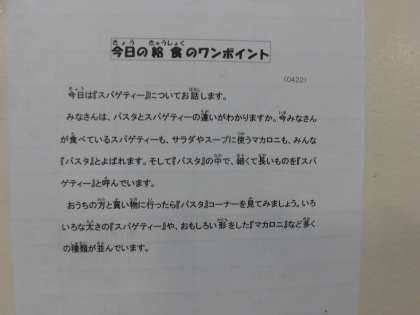 今日の給食のワンポイント
(0422)
今日は『スパゲティー』についてお話します。
みなさんは、パスタとスパゲティーの違いがわかりますか。今みなさん
が食べているスパゲティーも、サラダやスープに使うマカロニも、みんな
『パスタ』とよばれます。そして『パスタ』の中で、細くて長いものを『スパ
ゲティー』と呼んでいます。
おうちの方と買い物に行ったら『パスタ』コーナーを見てみましょう。いろ
いろな太さの『スパゲティー』や、おもしろい形をした『マカロニ』など多く
の種類が並んでいます。